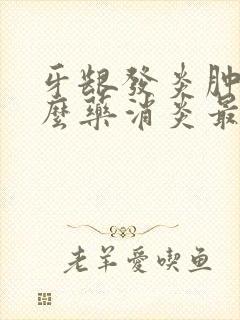 牙龈發炎肿
麽藥消炎最
老羊愛喫鱼